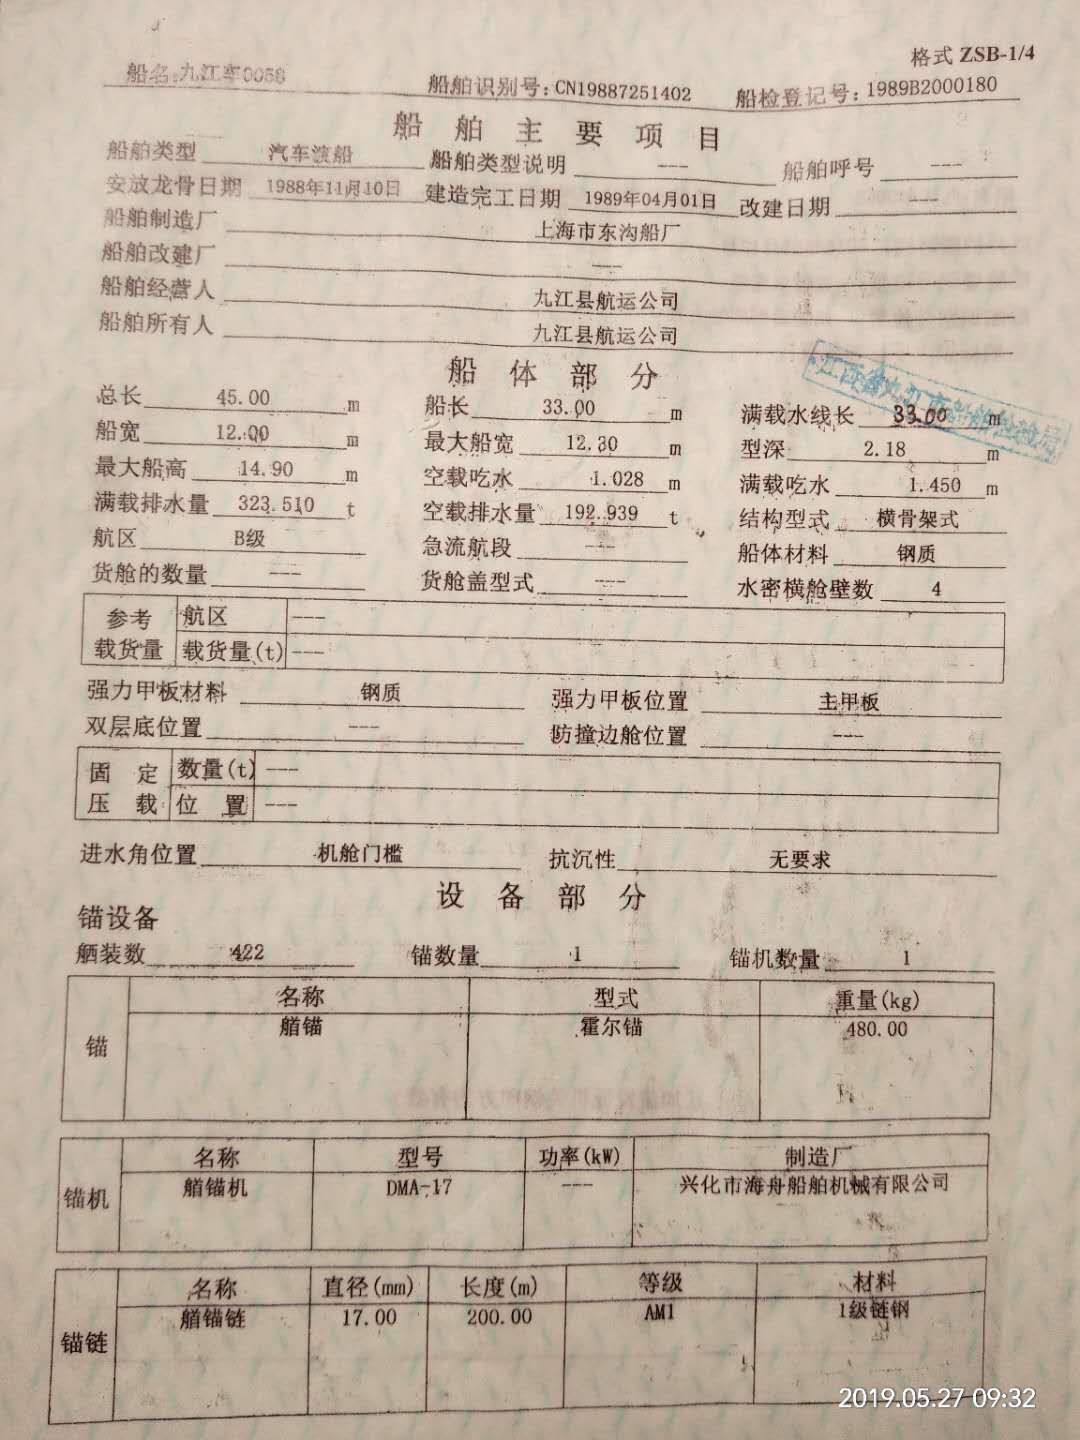 格式 ZSB-1/4
船名:九江车0058 船舶识别号:CN19887251402 船检登记号:1989B2000180
船 舶 主 要 项 目
船舶类型 汽车渡船 船舶类型说明 --- 船舶呼号 ---
安放龙骨日期 1988年11月10日 建造完工日期 1989年04月01日 改建日期 ---
船舶制造厂 上海市东沟船厂
船舶改建厂 ---
船舶经营人 九江县航运公司
船舶所有人 九江县航运公司
船 体 部 分
总长 45.00 m 船长 33.00 m 满载水线长 33.00 m
船宽 12.00 m 最大船宽 12.30 m 型深 2.18 m
最大船高 14.90 m 空载吃水 1.028 m 满载吃水 1.450 m
满载排水量 323.510 t 空载排水量 192.939 t 结构型式 横骨架式
航区 B级 急流航段 --- 船体材料 钢质
货舱的数量 --- 货舱盖型式 --- 水密横舱壁数 4
参考载货量 航区 ---
载货量(t) ---
强力甲板材料 钢质 强力甲板位置 主甲板
双层底位置 --- 防撞边舱位置 ---
固定压载 数量(t) ---
位置 ---
进水角位置 机舱门槛 抗沉性 无要求
设 备 部 分
锚设备
舾装数 422 锚数量 1 锚机数量 1
锚 名称 型式 重量(kg)
艏锚 霍尔锚 480.00
锚机 名称 型号 功率(kW) 制造厂
艏锚机 DMA-17 --- 兴化市海舟船舶机械有限公司
锚链 名称 直径(mm) 长度(m) 等级 材料
艏锚链 17.00 200.00 AM1 1级链钢
2019.05.27 09:32